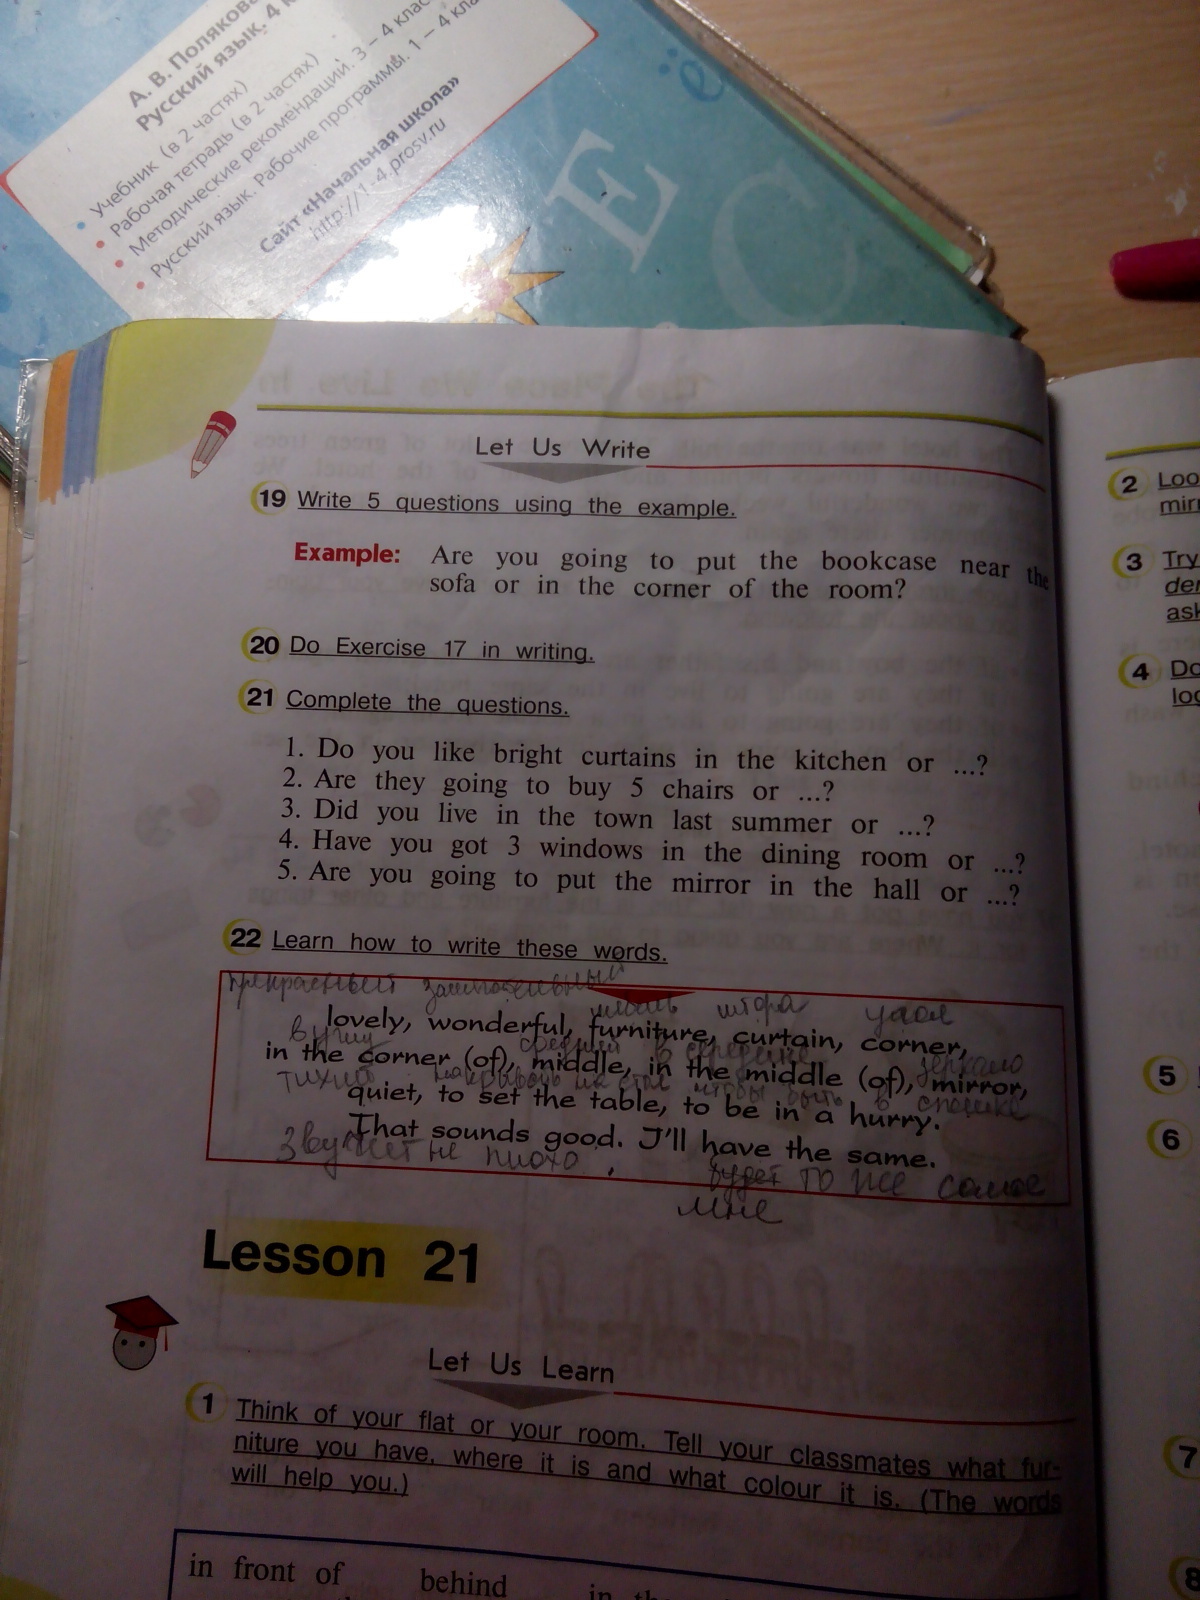 А. В. Полякова
Русский язык. 4
• Учебник (в 2 частях)
• Рабочая тетрадь (в 2 частях)
• Методические рекомендации. 3 – 4
• Русский язык. Рабочие программы. 1 – 4
Сайт «Начальная школа»
http://1-4.prosv.ru
Е
С
Let Us Write
19 Write 5 questions using the example.
Example: Are you going to put the bookcase near the
sofa or in the corner of the room?
20 Do Exercise 17 in writing.
21 Complete the questions.
1. Do you like bright curtains in the kitchen or ...?
2. Are they going to buy 5 chairs or ...?
3. Did you live in the town last summer or ...?
4. Have you got 3 windows in the dining room or ...?
5. Are you going to put the mirror in the hall or ...?
22 Learn how to write these words.
прекрасный замечательный
мебель штора угол
lovely, wonderful, furniture, curtain, corner,
в углу средний в середине зеркало
in the corner (of), middle, in the middle (of), mirror,
тихий накрывать на стол чтобы быть в спешке
quiet, to set the table, to be in a hurry.
That sounds good. I'll have the same.
Звучит не плохо, будет то же самое
мне
Lesson 21
Let Us Learn
1 Think of your flat or your room. Tell your classmates what fur-
niture you have, where it is and what colour it is. (The words
will help you.)
in front of behind in
2
3 Try
4
5
6
7
8